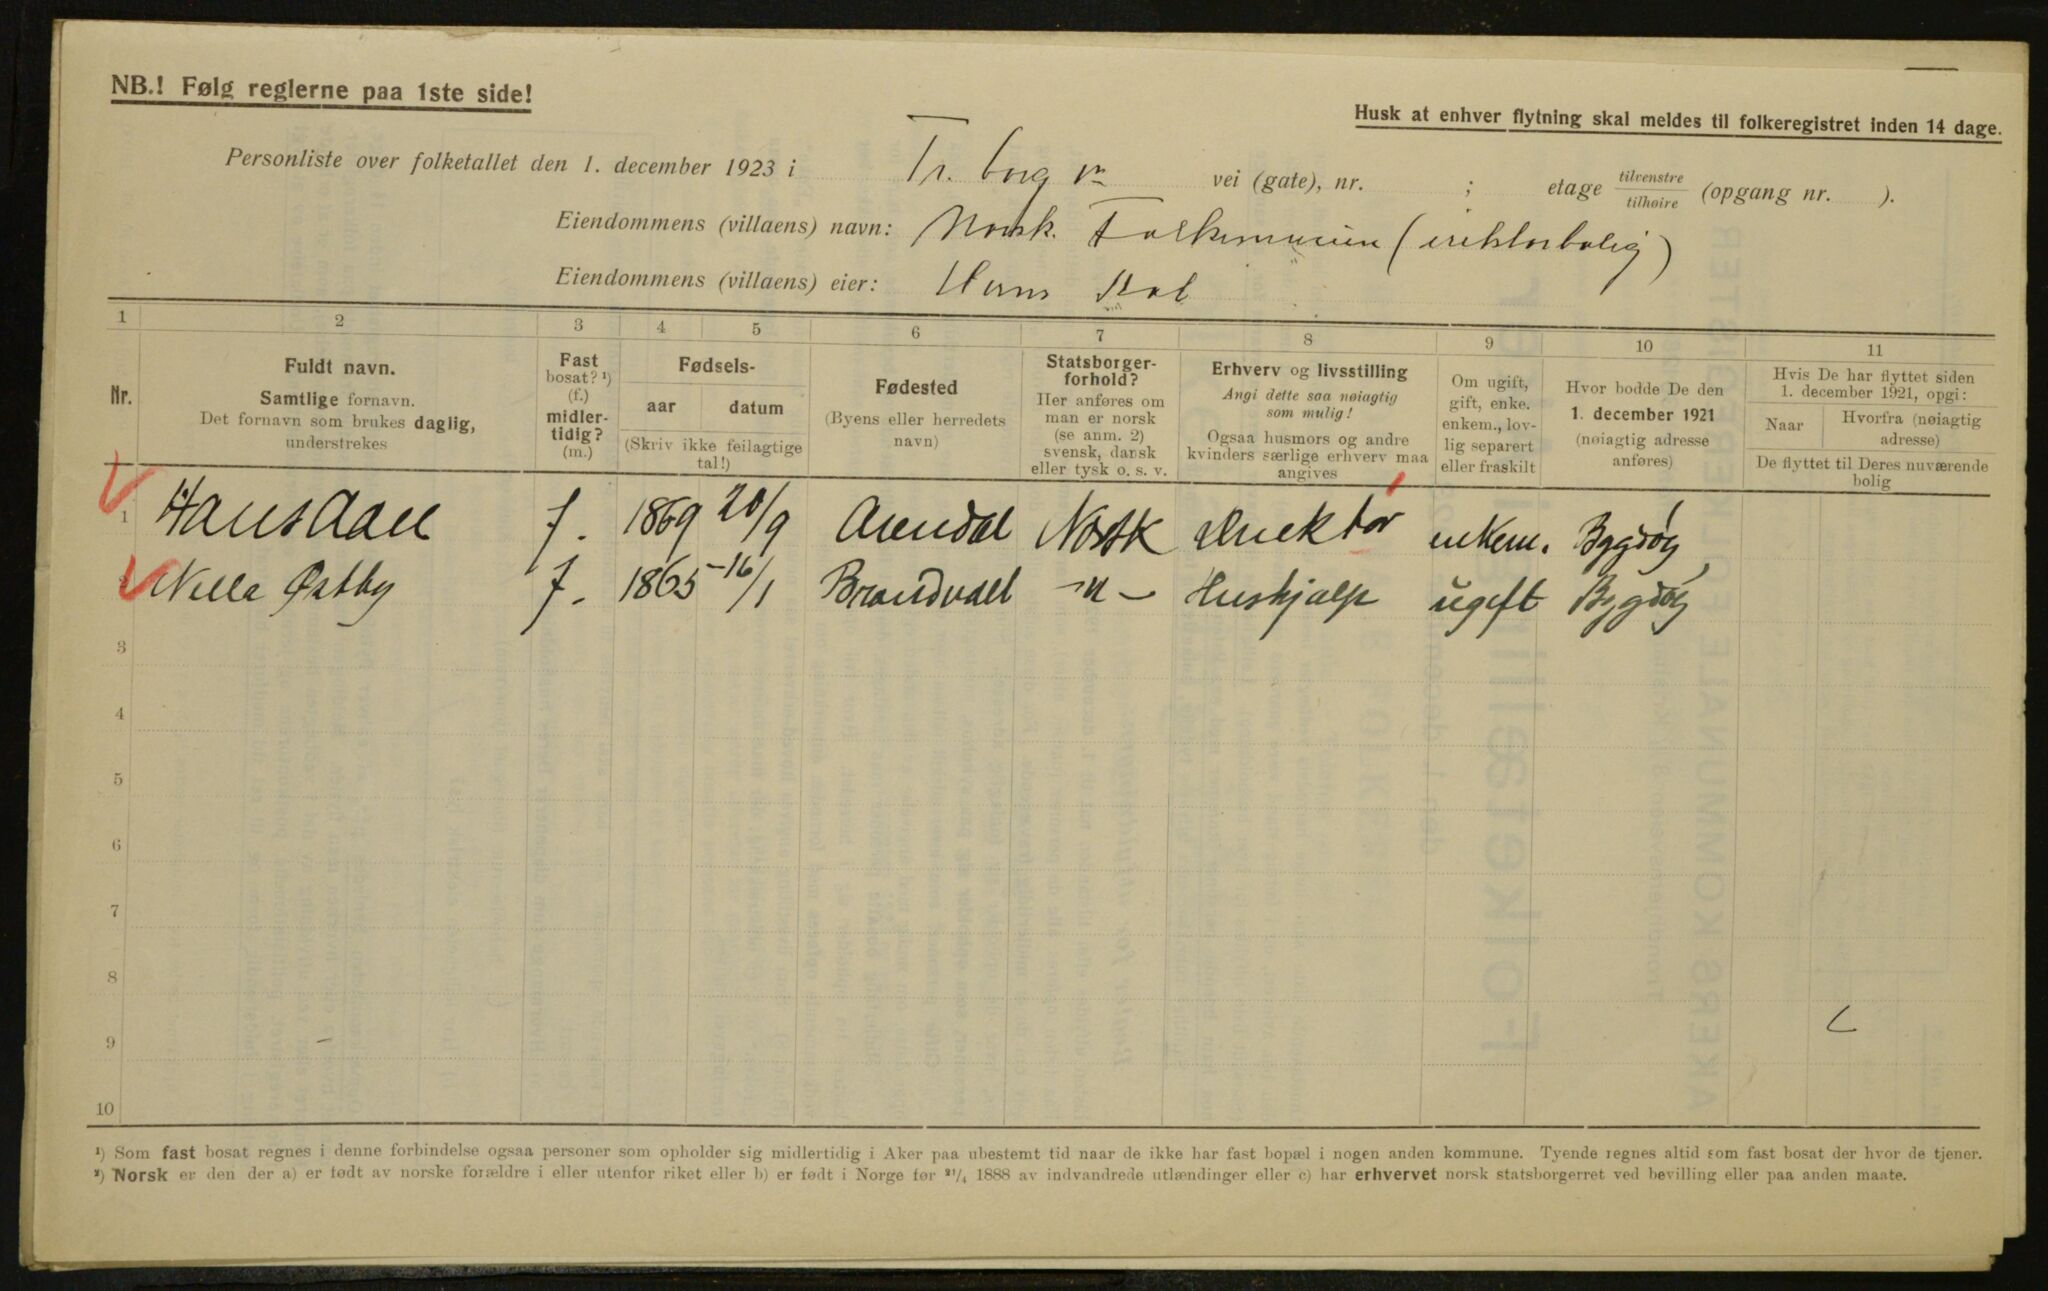 NB.! Følg reglerne paa 1ste side!
Husk at enhver flytning skal meldes til folkeregistret inden 14 dage.
Personliste over folketallet den 1. december 1923 i Fr. borg vn vei (gate), nr. ; etage tilvenstre tilhøire (opgang nr. ).
Eiendommens (villaens) navn: Norsk. Folkemuseum
Eiendommens (villaens) eier: Hans
1 2 3 4 5 6 7 8 9 10 11
Nr.
Fuldt navn.
Samtlige fornavn.
Det fornavn som brukes daglig,
understrekes
Fast
bosat? ¹)
(f.)
midler-
tidig?
(m.)
Fødsels-
aar datum
(Skriv ikke feilagtige
tal!)
Fødested
(Byens eller herredets
navn)
Statsborger-
forhold?
Her anføres om
man er norsk
(se anm. 2)
svensk, dansk
eller tysk o. s. v.
Erhverv og livsstilling
Angi dette saa nøiagtig
som mulig!
Ogsaa husmors og andre
kvinders særlige erhverv maa
angives
Om ugift,
gift, enke.
enkem., lov-
lig separert
eller fraskilt
Hvor bodde De den
1. december 1921
(nøiagtig adresse
anføres)
Hvis De har flyttet siden
1. december 1921, opgi:
Naar
Hvorfra (nøiagtig
adresse)
De flyttet til Deres nuværende
bolig
1 Hans Aall f. 1869 20/9 Arendal Norsk Direktør enkem. Bygdøy
2 Nilla Østby f. 1865 -16/1 Brandvall -"- Hushjælp ugift Bygdøy
3
4
5
6
7
8
9
10
¹) Som fast bosat regnes i denne forbindelse ogsaa personer som opholder sig midlertidig i Aker paa ubestemt tid naar de ikke har fast bopæl i nogen anden kommune. Tyende regnes altid som fast bosat der hvor de tjener.
²) Norsk er den der a) er født av norske forældre i eller utenfor riket eller b) er født i Norge før ²¹/₄ 1888 av indvandrede utlændinger eller c) har erhvervet norsk statsborgerret ved bevilling eller paa anden maate.